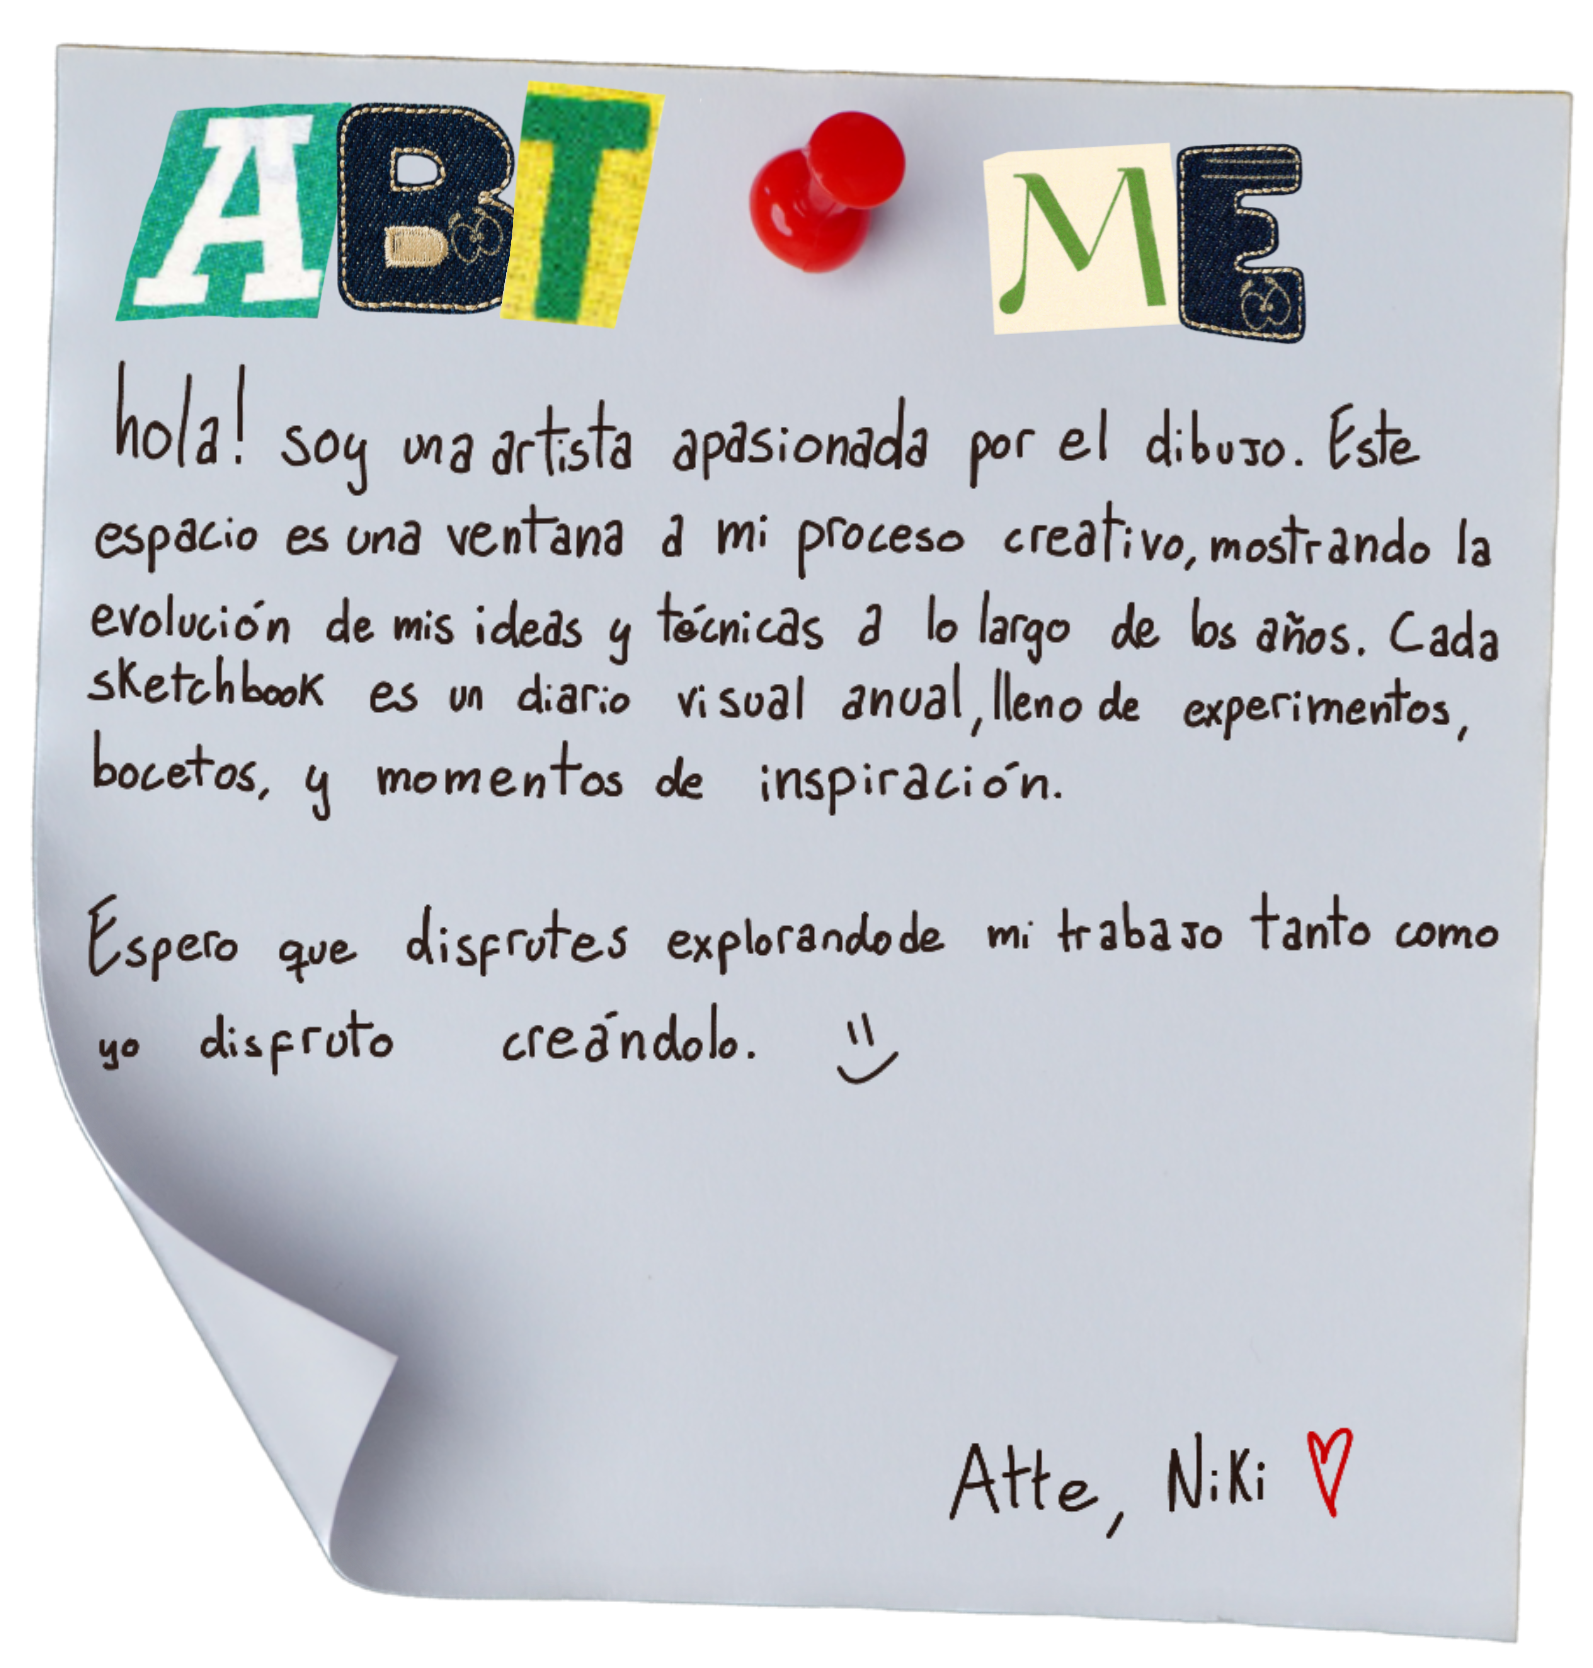 ABT ME
hola! soy una artista apasionada por el dibujo. Este
espacio es una ventana a mi proceso creativo, mostrando la
evolución de mis ideas y técnicas a lo largo de los años. Cada
sketchbook es un diario visual anual, lleno de experimentos,
bocetos, y momentos de inspiración.
Espero que disfrutes explorandode mi trabajo tanto como
yo disfruto creándolo.
Atte, Niki